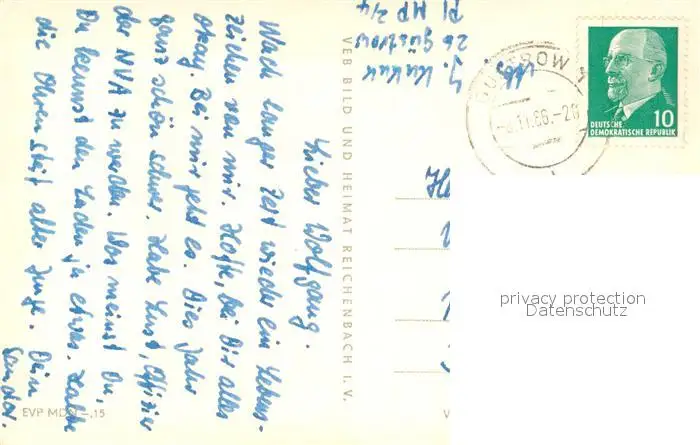 Lieber Wolfgang.
Nach langer Zeit wieder ein Lebens-
zeichen von mir. Hoffe, bei Dir alles
okay. Bei mir geht es. Dies Jahr
ganz schön schwer. Habe Lust, Offizier
der NVA zu werden. Was meinst Du,
Du kennst den Laden ja etwas. Halte
die Ohren steif alter Junge. Dein
Sandor.
EVP MDN -.15
VEB BILD UND HEIMAT REICHENBACH I. V.
Abs.
26 Güstrow
Pl MP 2/4
GÜSTROW 1
.11.66.-20
10
DEUTSCHE
DEMOKRATISCHE REPUBLIK
V
privacy protection
Datenschutz